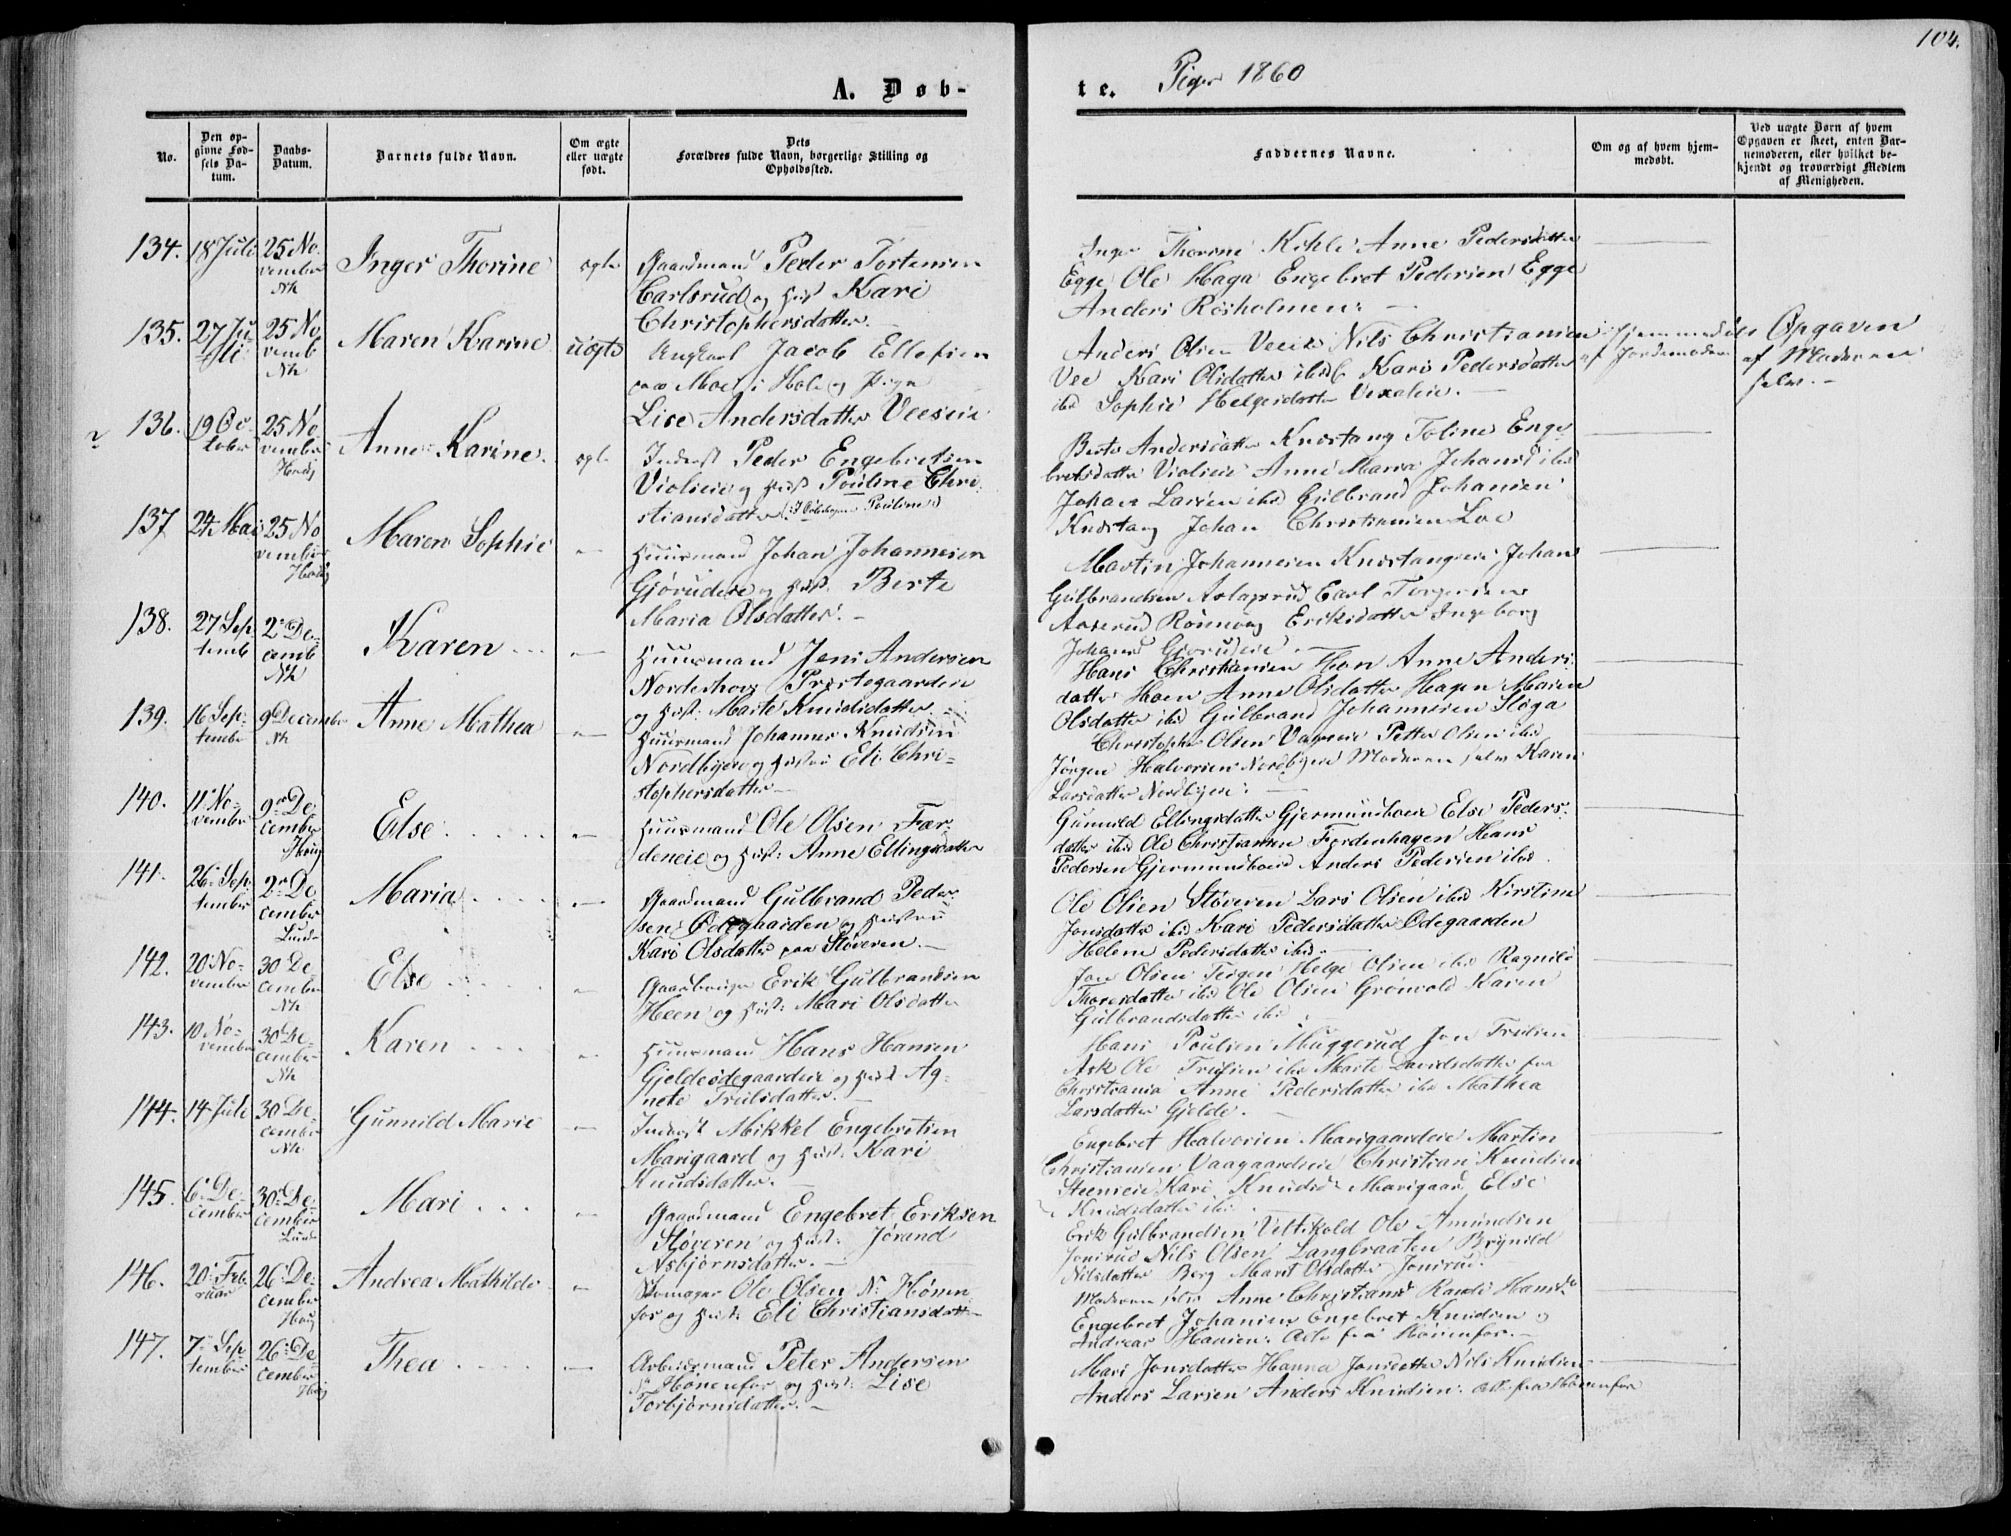 104.
A. Døb-
te. Piger 1860
No.
Den op-
givne Fød-
sels Da-
tum.
Daabs-
Datum.
Barnets fulde Navn.
Om ægte
eller uægte
født.
Dets
Forældres fulde Navn, borgerlige Stilling og
Opholdssted.
Faddernes Navne.
Om og af hvem hjem-
medøbt.
Ved uægte Børn af hvem
Opgaven er skeet, enten Bar-
nemoderen, eller hvilket be-
kjendt og troværdigt Medlem
af Menigheden.
134. 18 Juli 25 No-
vember
Nh
Inger Thorine
ægte
Gaardmand Peder Tostensen
Carlsrud og Hust Kari
Christophersdatter.
Inger Thorine Kihle Anne Pedersdatter
Egge Ole Haga Engebret Pedersen Egge
Anders Rosholmen.
135. 27 Ju-
li
25 No
vemb
Nh
Maren Karine
uægte
Ungkarl Jacob Ellefsen
paa Moe i Hole og Pige
Lise Andersdatter Veeseie
Anders Olsen Veeie Nils Christiansen
Vee Kari Olsdatter ibid Kari Pedersdatter
ibd Sophie Helgesdatter Vexaleie.
hjemmedøbt
af Jordemoderen
Opgaven
af Moderen
selv.
136. 19 Oc-
tober
25 No-
vember
Houg
Anne Karine.
ægte
Inderst Peder Engebretsen
Violieie og Hust Pouline Chri-
stiansdatter
Berte Andersdatter Knestang Toline Enge-
bretsdatter Violieie Anne Maria Johansd ibid
Johan Larsen ibid Gulbrand Johansen
Knestang Johan Christiansen Loe
137 24 Mai 25 No
vember
Houg
Maren Sophie
Huusmand Johan Johannesen
Gjørudeie og Hust. Berte
Maria Olsdatter.
Martin Johannesen Knestangeie Johan
Gulbrandsen Aslagsrud Carl Torgersen
Aaserud Rønnoug Eriksdatter Ingeborg
Johansd Gjørudeie.
138. 27 Sep-
temb
2 De-
cemb
Nh
Karen
Huusmand Jens Andersen
Norderhovs Præstegaardeie
og Hust: Marte Knudsdatter.
Hans Christiansen Hoen Anne Anders-
datter Hoen Anne Olsdatter Hagen Maren
Olsdatter ibid Gulbrand Johannesen Høga
139. 16 Sep-
tember
9 December
Nh
Anne Mathea
Huusmand Johannes Knudsen
Nordbyeie og Hustru Eli Chri-
stophersdatter
Christopher Olsen Petter Olsen ibid
Jørgen Halvorsen Nordbyeie Moderen selv Karen
Larsdatter Nordbyeie.
140. 11 No-
vember
9 De-
cember
Houg
Else
Huusmand Ole Olsen Fær-
deneie og Hust: Anne Ellingsdatter
Gunnild Ellingsdatter Gjermundboeie Else Peders-
datter ibid Ole Christiansen Færdenhagen Hans
Pedersen Gjermundboeie Anders Pedersen ibid
141. 26 Sep-
tember
2 De-
cember
Lunde
Maria
Gaardmand Gulbrand Peder-
sen Ødegaarden og Hustru
Kari Olsdatter paa Støveren.
Ole Olsen Støveren Lars Olsen ibid Kirstine
Jonsdatter ibid Kari Pedersdatter Ødegaarden
Helene Pedersdatter ibid
142. 20 No-
vember
30 De-
cember
Nh
Else
Gaardbruger Erik Gulbrandsen
Heen og Hust: Mari Olsdatter
Jon Olsen Teigen Helge Olsen ibid Ragnild
Thoresdatter ibid Ole Olsen Grønvold Karen
Gulbrandsdatter ibd
143. 10 No-
vember
30 De-
cember
Nh
Karen
Huusmand Hans Hansen
Gjeldeødegaardeie og Hust Ag-
nete Trulsdatter.
Hans Poulsen Muggerud Jon Trulsen
Ask Ole Trulsen ibid Marte Davidsdatter fra
Christiania Anne Pedersdatter ibd Mathea
Larsdatter Gjelde.
144. 14 Juli 30 De-
cember
Nh
Gunnild Marie
Inderst Mikkel Engebretsen
Marigaard og Hust: Kari
Knudsdatter.
Engebret Halvorsen Marigaardeie Martin
Christiansen Vaagaardseie Christian Knudsen
Steenseie Kari Knudsd Marigaard Else
Knudsdatter ibid
145. 6 De-
cember
30 De-
cember
Lunde
Mari
Gaardmand Engebret Eriksen
Støveren og Hust: Jørand
Asbjørnsdatter.
Erik Gulbrandsen Veltikold Ole Amundsen
Jonsrud Nils Olsen Langbraaten Brynild
Nilsdatter Berg Marit Olsdatter Jonsrud.
146. 20 Feb-
ruar
26 De-
cember
Houg
Andrea Mathilde
Skomager Ole Olsen N. Hønen-
fos og Hust: Eli Christiansdatter
Moderen selv Anne Christiansd Randi Hansd
Engebret Johansen Engebret Knudsen og
Andreas Hansen: alle fra Hønenfos.
147. 7 Sep-
tember
26 De-
cember
Houg
Thea
Arbeidsmand Peter Andersen
Hønenfos og Hust: Lise
Torbjørnsdatter.
Mari Jonsdatter Hanna Jonsdatter Nils Knudsen
Anders Larsen Anders Knudsen: alle fra Hønenfos